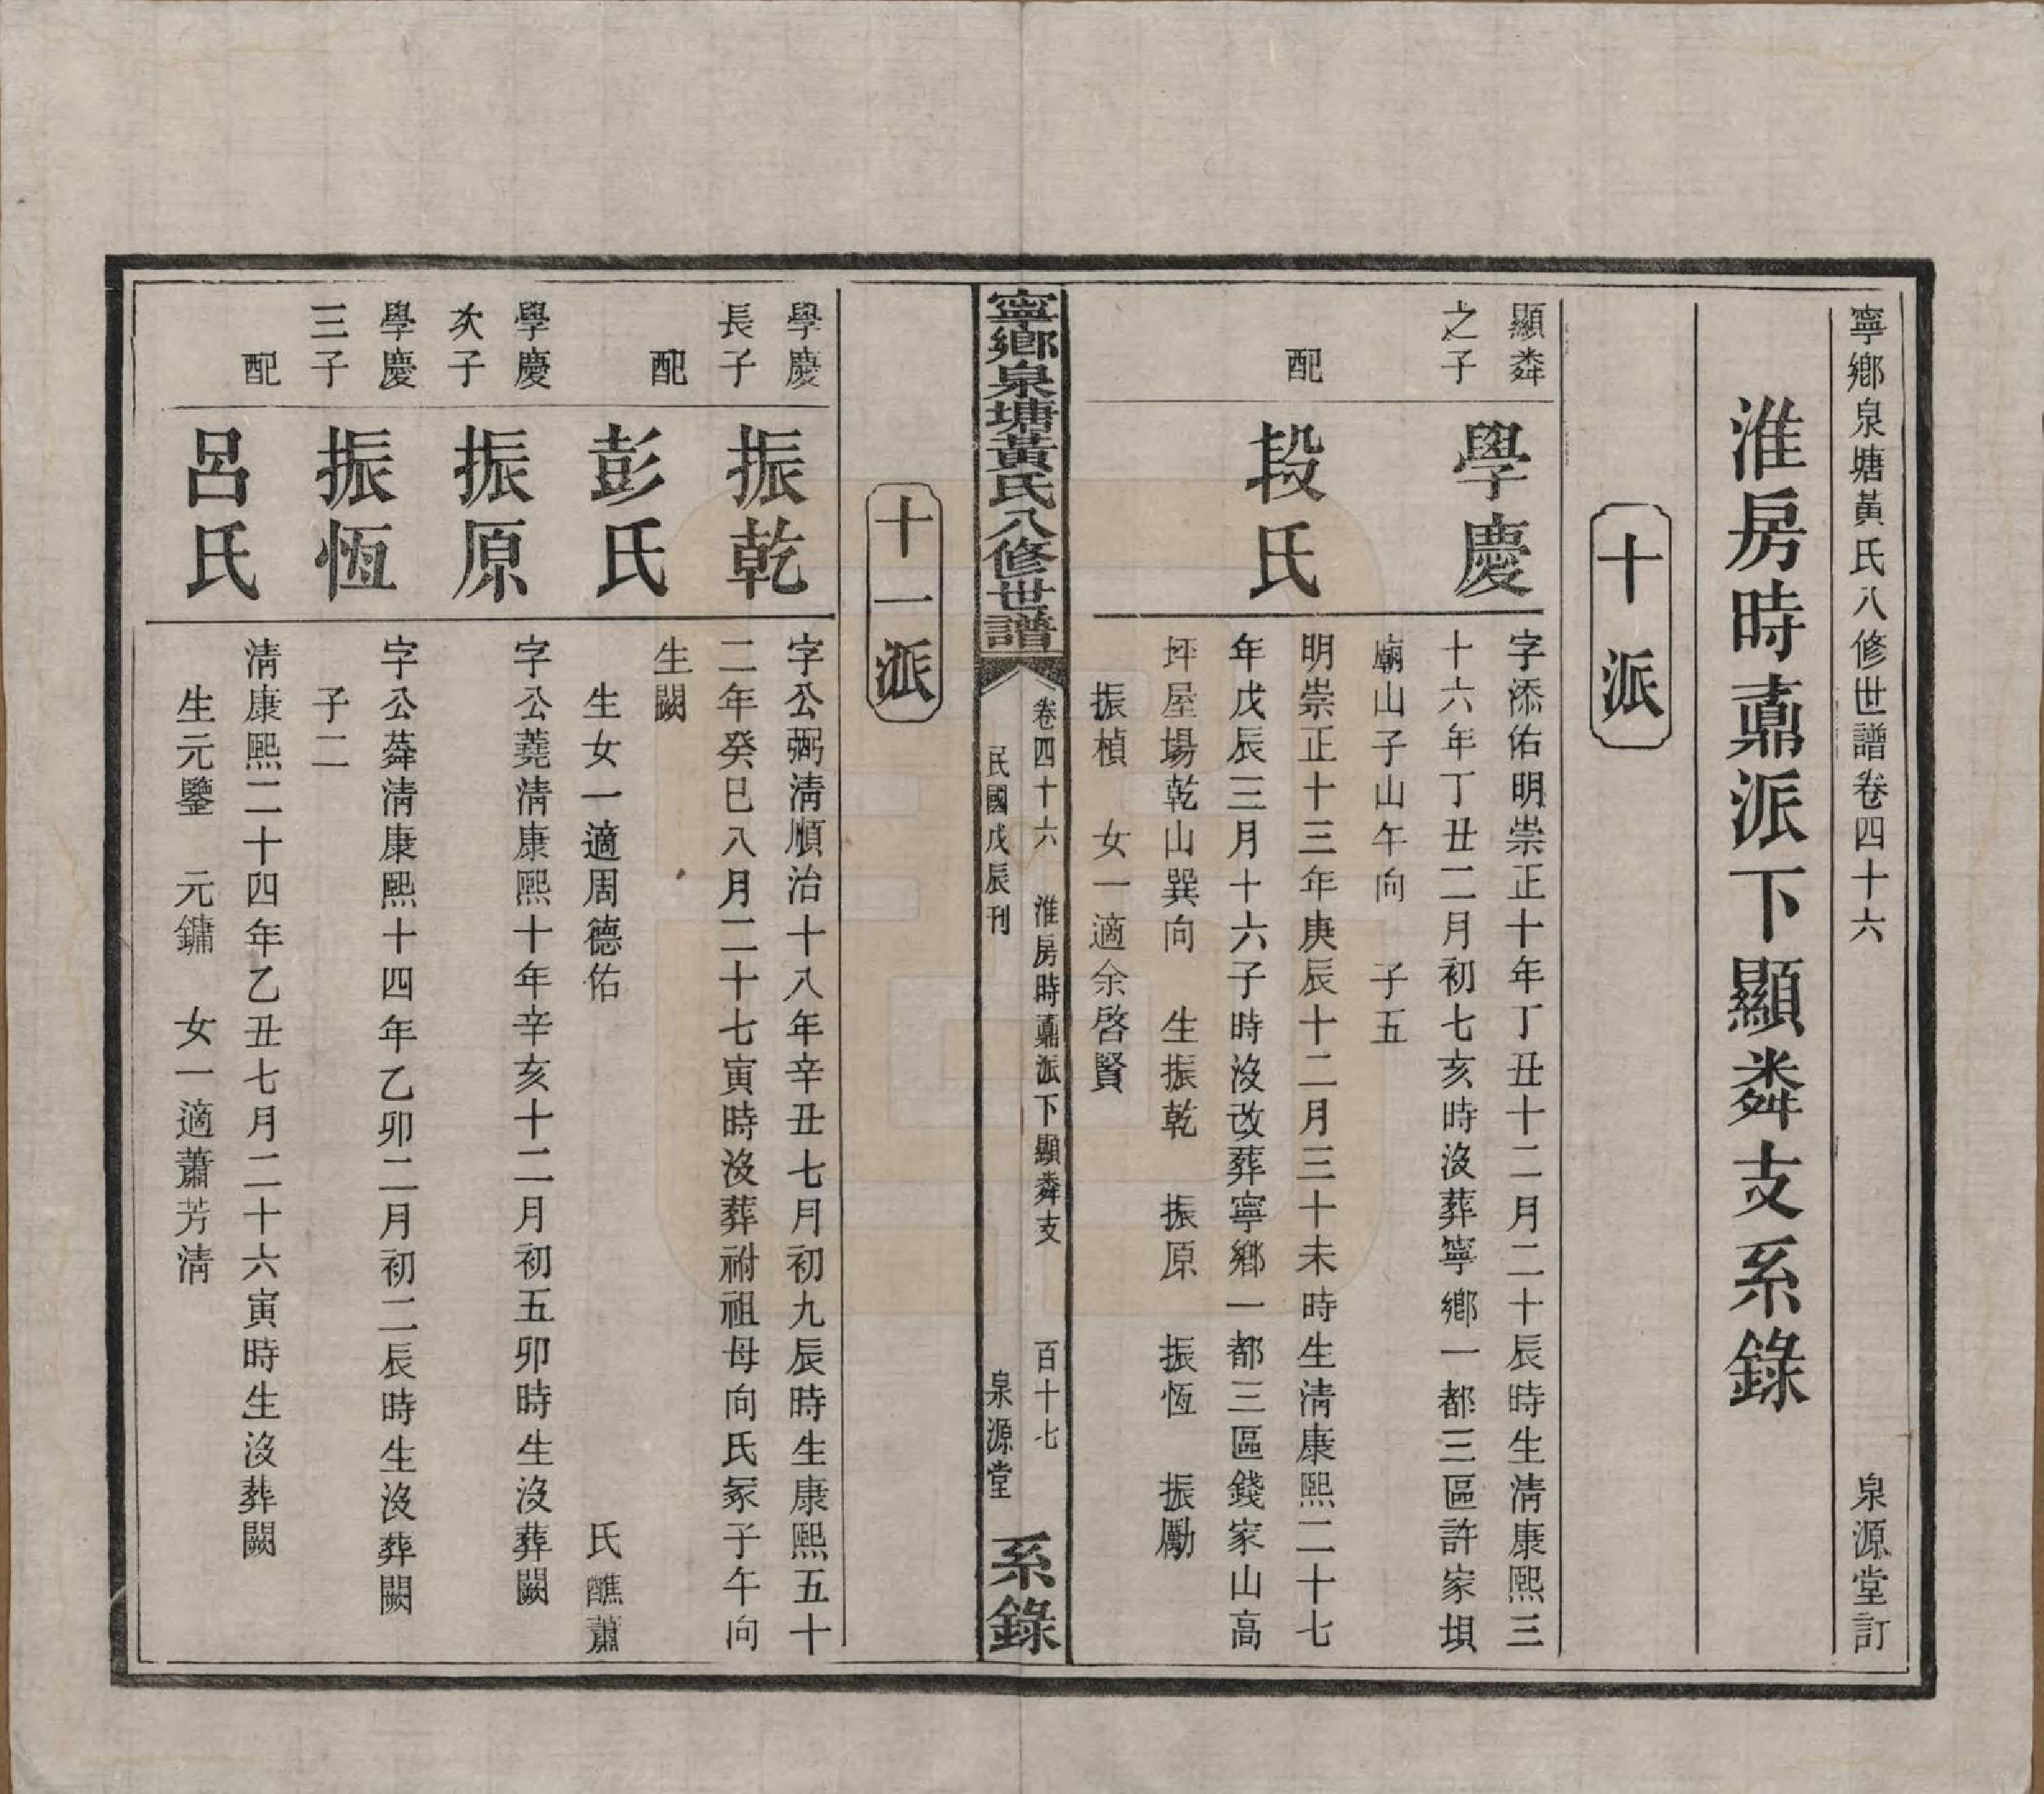 寧鄉泉塘黃氏八修世譜卷四十六
泉源堂訂
淮房時鼒派下顯粦支系錄
十派
顯粦之子
學慶
字添佑明崇正十年丁丑十二月二十辰時生清康熙三
十六年丁丑二月初七亥時沒葬寧鄉一都三區許家垻
廟山子山午向 子五
配
段氏
明崇正十三年庚辰十二月三十未時生清康熙二十七
年戊辰三月十六子時沒改葬寧鄉一都三區錢家山高
坪屋場乾山巽向 生振乾 振原 振恆 振勵
振楨 女一適余啓賢
寧鄉泉塘黃氏八修世譜
卷四十六 淮房時鼒派下顯粦支 百十七
民國戊辰刊 泉源堂
系錄
十一派
學慶長子
振乾
字公弼清順治十八年辛丑七月初九辰時生康熙五十
二年癸巳八月二十七寅時沒葬祔祖母向氏冢子午向
配
彭氏
生闕
生女一適周德佑 氏醮蕭
學慶次子
振原
字公蕘清康熙十年辛亥十二月初五卯時生沒葬闕
學慶三子
振恆
字公粦清康熙十四年乙卯二月初二辰時生沒葬闕
子二
配
呂氏
清康熙二十四年乙丑七月二十六寅時生沒葬闕
生元鑒 元鏞 女一適蕭芳清